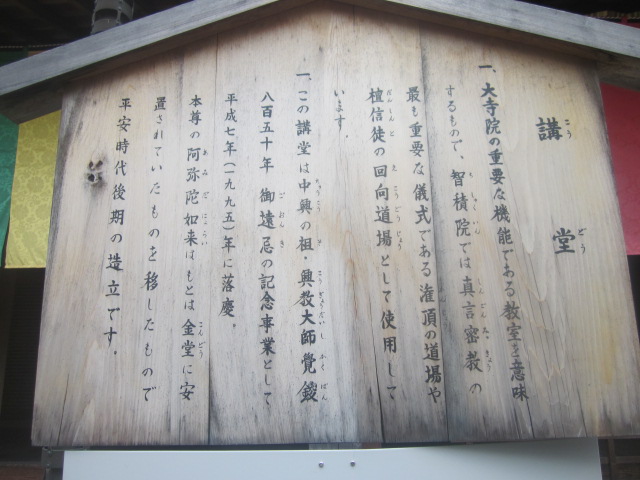 講堂
一、大寺院の重要な機能である教室を意味
するもので、智積院では真言密教の
最も重要な儀式である灌頂の道場や
檀信徒の回向道場として使用して
います。
一、この講堂は中興の祖・興教大師覚鑁
八百五十年御遠忌の記念事業として
平成七年(一九九五)年に落慶。
本尊の阿弥陀如来はもとは金堂に安
置されていたものを移したもので
平安時代後期の造立です。